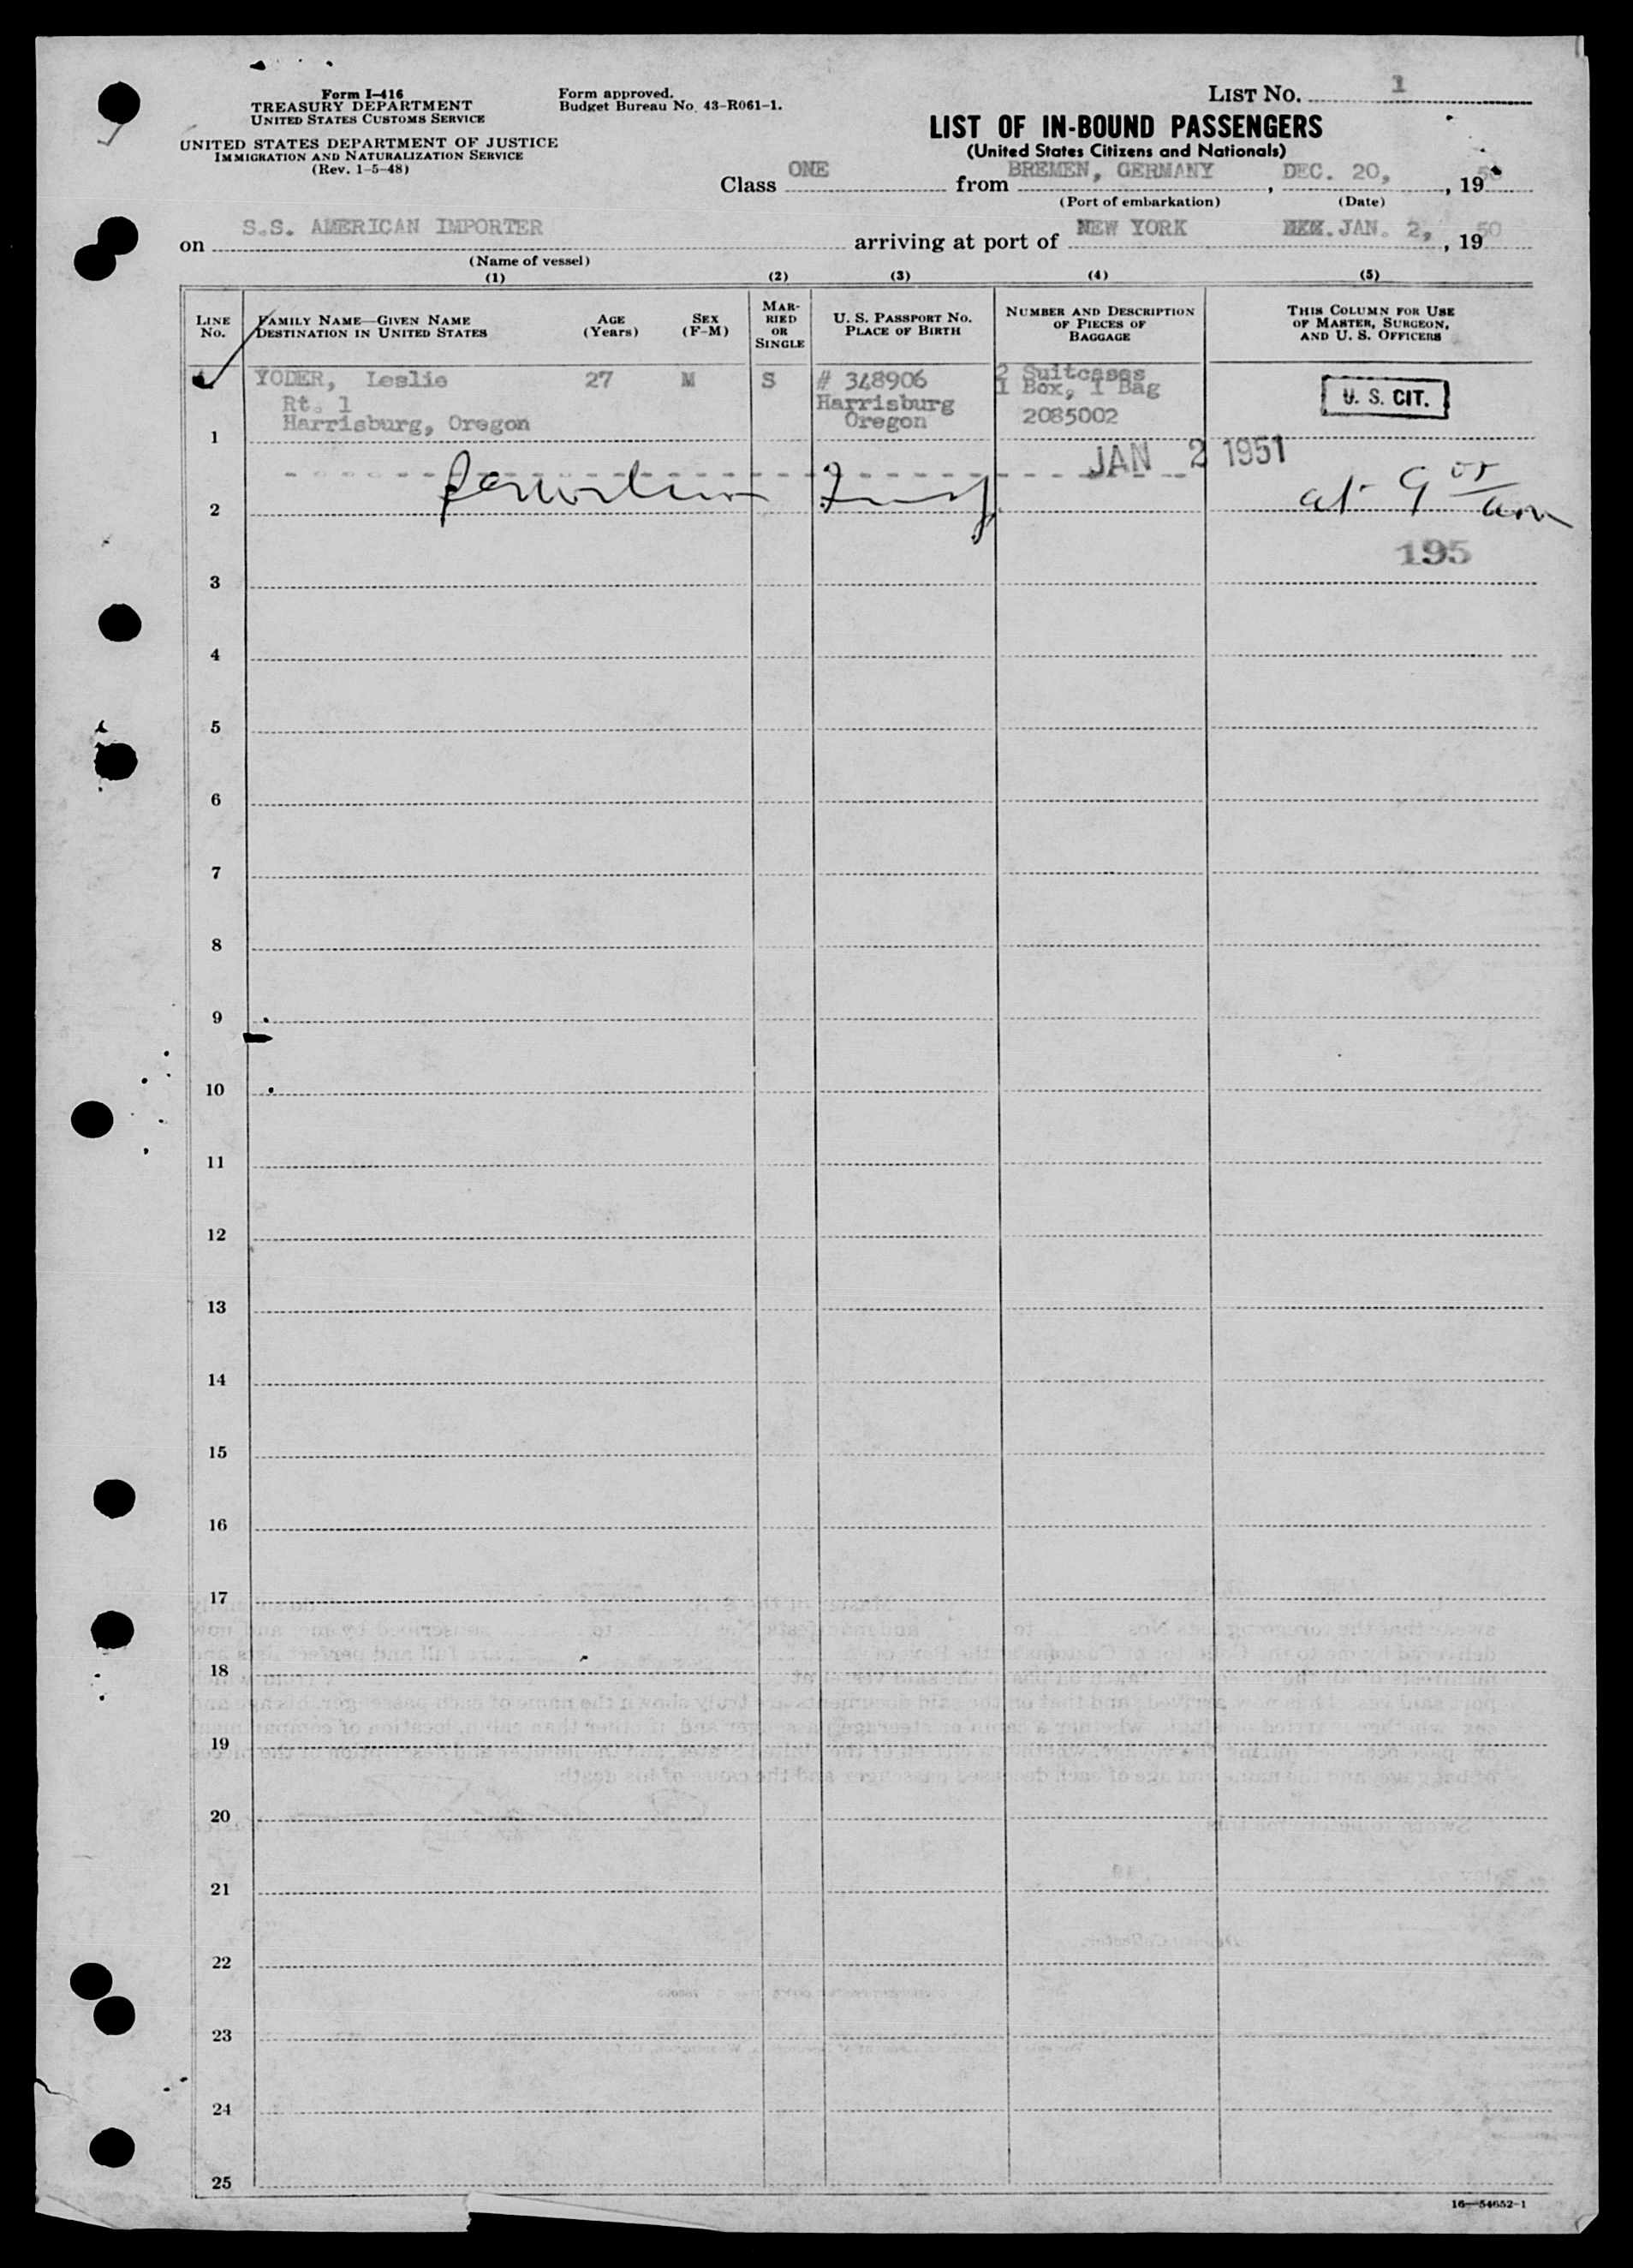 Form I-416
TREASURY DEPARTMENT
UNITED STATES CUSTOMS SERVICE
UNITED STATES DEPARTMENT OF JUSTICE
IMMIGRATION AND NATURALIZATION SERVICE
(Rev. 1-5-48)
Form approved.
Budget Bureau No. 43-R061-1.
LIST NO. 1
LIST OF IN-BOUND PASSENGERS
(United States Citizens and Nationals)
Class ONE from BREMEN, GERMANY, DEC. 20, , 1950
(Port of embarkation) (Date)
on S.S. AMERICAN IMPORTER arriving at port of NEW YORK JAN. 2, , 1950
(Name of vessel)
(1) (2) (3) (4) (5)
LINE No.
FAMILY NAME—GIVEN NAME
DESTINATION IN UNITED STATES
AGE
(Years)
SEX
(F-M)
MAR-
RIED
OR
SINGLE
U. S. PASSPORT NO.
PLACE OF BIRTH
NUMBER AND DESCRIPTION
OF PIECES OF
BAGGAGE
THIS COLUMN FOR USE
OF MASTER, SURGEON,
AND U. S. OFFICERS
YODER, Leslie 27 M S # 348906 2 Suitcases
1 Box, 1 Bag
U. S. CIT.
Rt. 1 Harrisburg
Harrisburg, Oregon Oregon 2085002
1
JAN 2 1951
2 at 9 am
195
3
4
5
6
7
8
9
10
11
12
13
14
15
16
17
18
19
20
21
22
23
24
25
16—54652-1